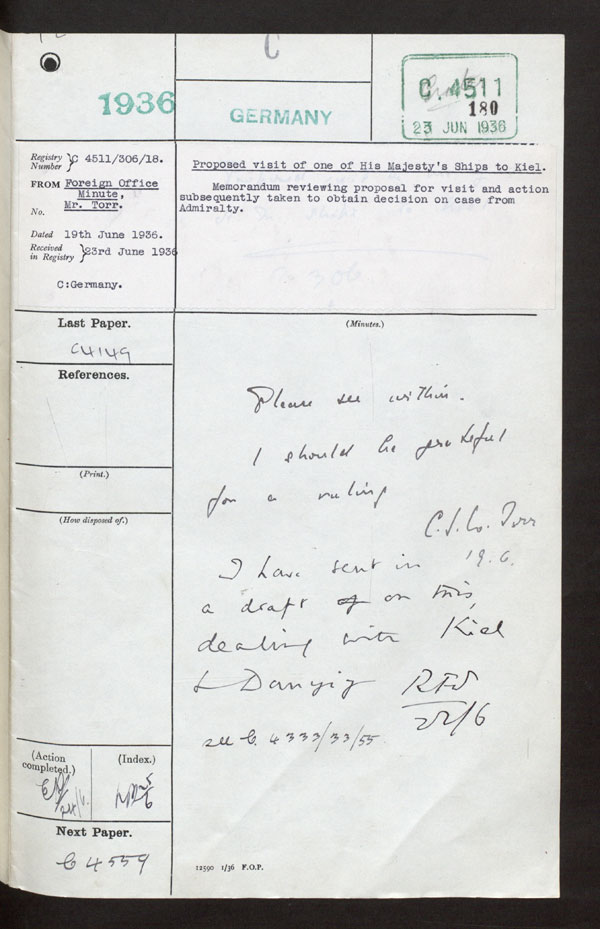 C
1936
GERMANY
C 4511
180
23 JUN 1936
Registry Number } C 4511/306/18.
FROM Foreign Office
Minute,
Mr. Torr.
No.
Dated 19th June 1936.
Received in Registry } 23rd June 1936
C:Germany.
Proposed visit of one of His Majesty's Ships to Kiel.
Memorandum reviewing proposal for visit and action
subsequently taken to obtain decision on case from
Admiralty.
306
Last Paper.
C4149
References.
(Print.)
(How disposed of.)
(Action completed.)
(Index.)
Next Paper.
C 4559
(Minutes.)
Please see within.
I should be grateful
for a ruling
C.J.W. Torr
19.6.
I have sent in
a draft on this,
dealing with Kiel
& Danzig
22/6
see C. 4333/33/55.
12590 1/36 F.O.P.